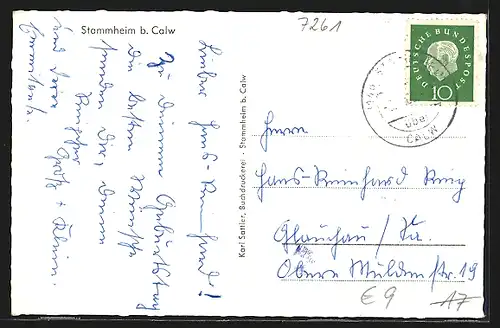 Stammheim b. Calw
7261
DEUTSCHE BUNDESPOST
10
über
CALW
Lieber Hans-Reinhard!
Zu Deinem Geburtstag
die besten Wünsche
senden Dir, Deinen
und Deine
Karl Sattler, Buchdruckerei - Stammheim b. Calw
Herrn
Hans-Reinhard
Glauchau / Sa.
Obere Muldenstr. 19
€ 9
A7